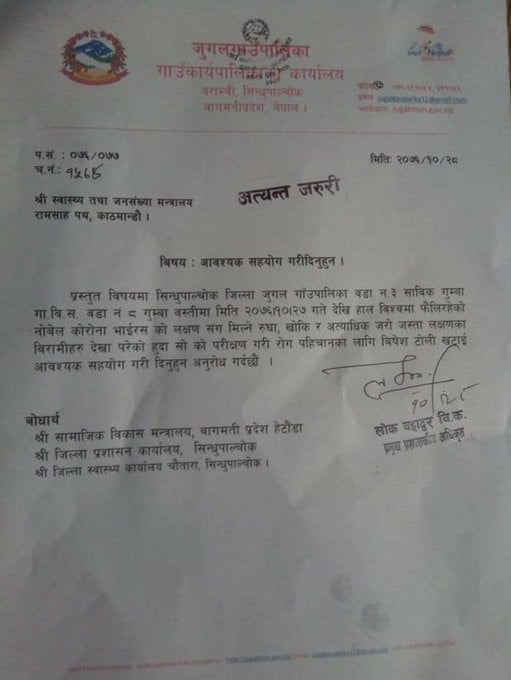 जुगल गाउँपालिका
गाउँकार्यपालिकाको कार्यालय
बराम्ची, सिन्धुपाल्चोक
बागमती प्रदेश, नेपाल ।
फोन
इमेल: jugalgaupalika12@gmail.com
website: jugalmun.gov.np
प.सं. : ०७६/०७७
मिति: २०७६/१०/२८
च.नं.:
श्री स्वास्थ्य तथा जनसंख्या मन्त्रालय
अत्यन्त जरुरी
रामसाह पथ, काठमान्डौ ।
विषय : आवश्यक सहयोग गरीदिनुहुन ।
प्रस्तुत विषयमा सिन्धुपाल्चोक जिल्ला जुगल गाँउपालिका वडा न.३ साविक गुम्बा
गा.वि.स. वडा नं ८ गुम्बा वस्तीमा मिति २०७६।१०।२७ गते देखि हाल विश्वमा फैलिरहेको
नोबेल कोरोना भाईरस को लक्षण संग मिल्ने रुघा, खोकि र अत्याधिक जरो जस्ता लक्षणका
विरामीहरु देखा परेको हुदा सो को परीक्षण गरी रोग पहिचानका लागि बिषेश टोली खटाई
आवश्यक सहयोग गरी दिनुहुन अनुरोध गर्दछौं ।
१०/२८
बोधार्थ
लोक बहादुर वि.क.
श्री सामाजिक विकास मन्त्रालय, बागमती प्रदेश हेटौडा
प्रमुख प्रशासकीय अधिकृत
श्री जिल्ला प्रशासन कार्यालय, सिन्धुपाल्चोक
श्री जिल्ला स्वास्थ्य कार्यालय चौतारा, सिन्धुपाल्चोक ।